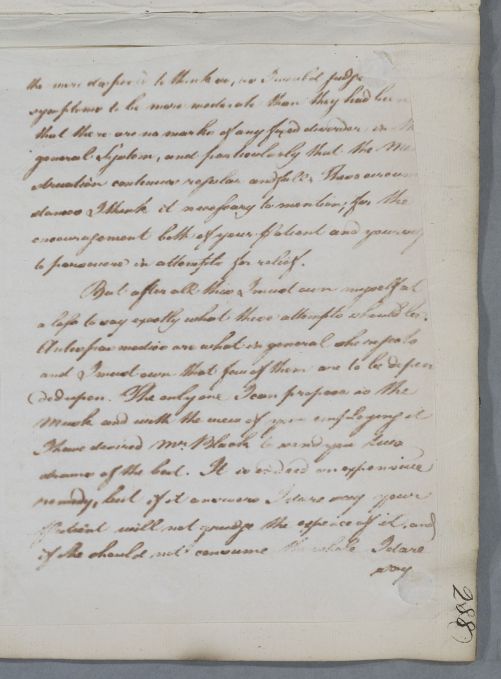 the more desperate to think on, so I would judge
symptoms to be more moderate than they had been
that there are no marks of any fixed disorder in the
general System, and particularly that the Men
struation continues regular and full. These circum
stances I think it necessary to mention, for the
encouragement both of your Patient and yourself
to persevere in attempts for relief.
But after all this I must own myself at
a loss to say exactly what these attempts should be.
Antispasmodics are what in general she
and I must own that few of them are to be depen
ded upon. The only one I can propose is the
Musk and with the view of your employing it
I have desired Mr. Black to send you two
drams of the best. It is indeed an expensive
remedy, but if it answers I dare say your
Patient will not grudge the expence of it, and
if she should not consume the whole I dare
say
288